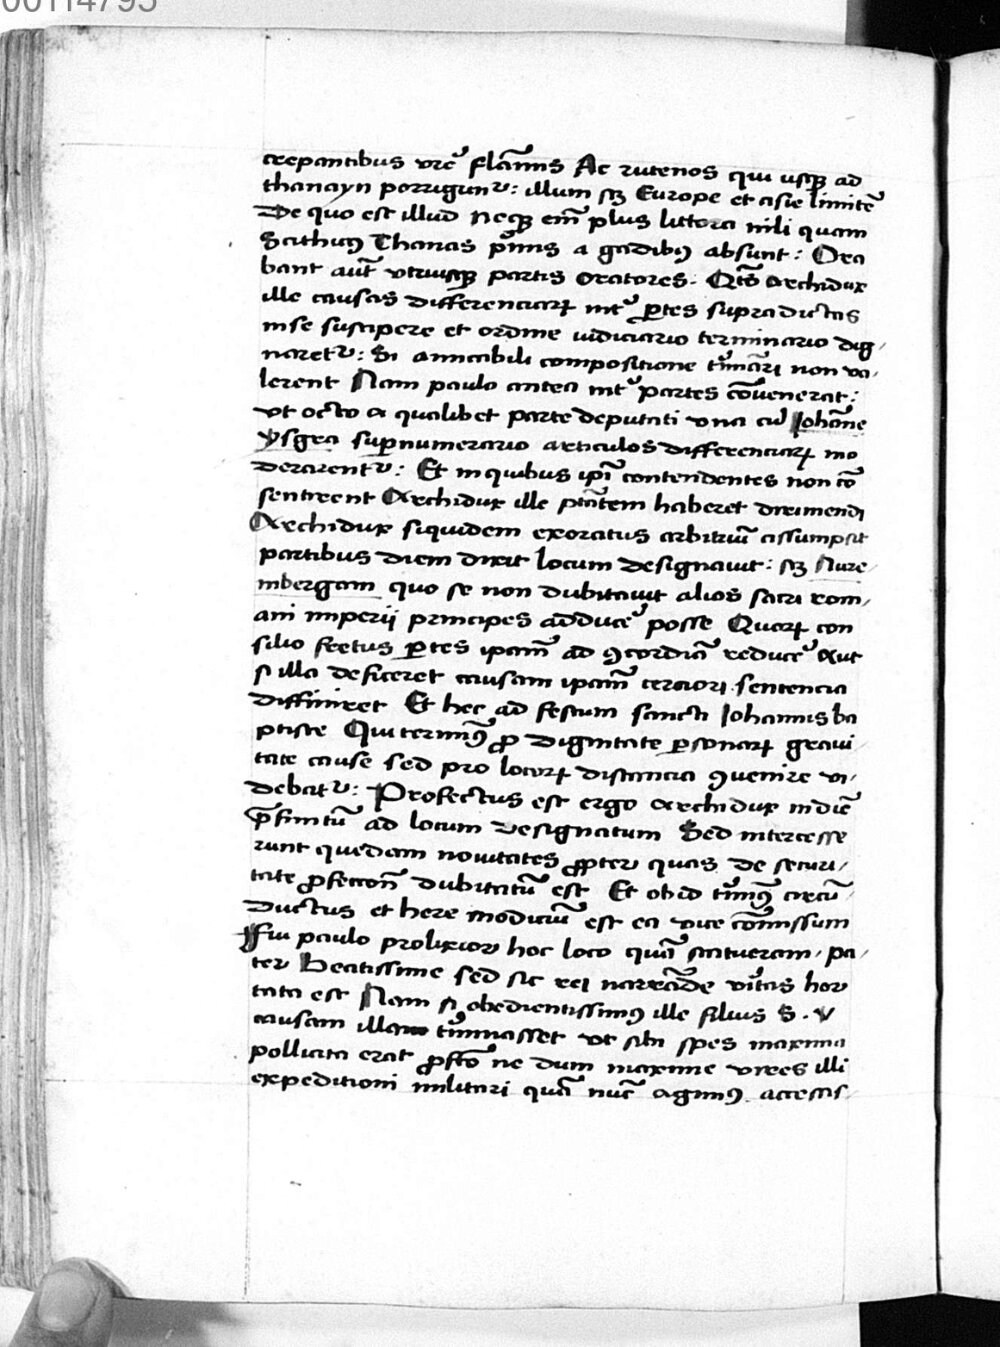 00114795
crepantibus vrẽ flãmis Ac rutenos qui usqꝫ ad
thanayn porrigunᵗ: illum sꝫ Europe et asie limitẽ
De quo est illud Neqꝫ em̃ plus littora nili quam
Scithicꝰ Thanas p̃mis a gadibꝰ absunt: Ora
bant aut̃ vtriusqꝫ partis oratores. Qtꝰ Archidux
ille causas differenciarꝝ int᷑ ꝑtes supra dictas
in se suscipere et ordine iudiciario terminario dig
naretᵗ: Si amicabili compositione t̃mari non va
lerent Nam paulo antea int᷑ partes cõvenerat:
vt octo a qualibet parte deputati vna cũ Johãne
ysgra supnumerario articulos differenciarꝝ mo
derarentᵗ: Et in quibus ip̃i contendentes non cõ
sentirent Archidux ille ptãtem haberet dirimendi
Archidux siquidem exoratus arbitriũ assumpsit
partibus diem dixit locum designauit: sꝫ Nure
mbergam quo se non dubitauit alios sacri rom
ani imperii principes adduce᷑ posse Quorꝝ con
silio fretus ꝑtes ipam̃ ad ꝯcordiã reduce᷑ Aut
si illa deficeret causam ipam̃ cerciori sentencia
diffiniret Et hec ad festum sancti Johannis ba
ptiste Qui terminꝰ ꝓ dignitate ꝑsonarꝝ graui
tate cause sed pro locorꝝ distancia ꝯuenire vi
debatᵗ: Profectus est ergo Archidux in diẽ
p̃finitũ ad locum designatum Sed intercesse
runt quedam nouitates ꝓpter quas de securi
tate ꝓfeccoñ dubitatũ est Et ob id t̃minꝰ circũ
ductus et here modicũ est ea vice cõmissum
Fui paulo prolixior hoc loco quã statueram pa
ter Beatissime sed sic rei narrãde v̾itas hor
tata est Nam si obedientissimꝰ ille filius S. V
causam illam t̃minasset vt sibi spes maxima
pollicita erat ꝓfcõ ne dum maxime vires illi
expeditioni militari quã nũc agimꝰ accessis